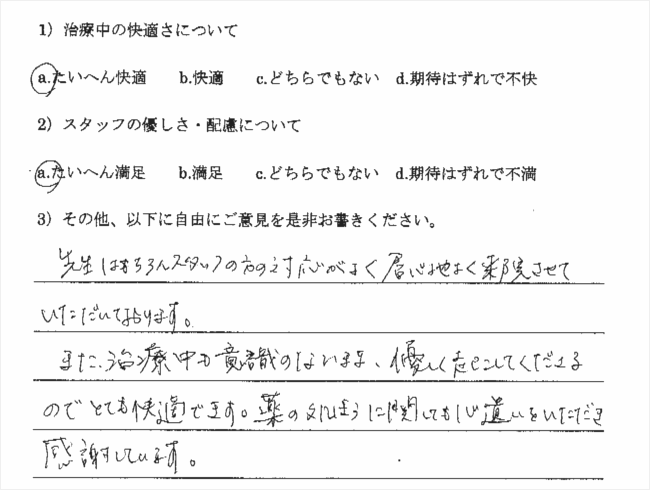 1）治療中の快適さについて
a.たいへん快適 b.快適 c.どちらでもない d.期待はずれで不快
2）スタッフの優しさ・配慮について
a.たいへん満足 b.満足 c.どちらでもない d.期待はずれで不満
3）その他、以下に自由にご意見を是非お書きください。
先生はもちろんスタッフの方の対応がよく居心地よく来院させて
いただいております。
また、治療中も意識のないまま、優しく起こしてくださる
のでとても快適です。薬の処方に関しても心遣いをいただき
感謝しています。